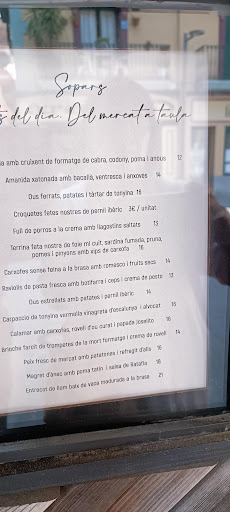 Sopars
s del dia. Del mercat a taula
a amb cruixent de formatge de cabra, codony, poma i anous 12
Amanida xatonada amb bacallà, ventresca i anxoves 14
Ous ferrats, patates i tàrtar de tonyina 16
Croquetes fetes nostres de pernil ibèric 3€ / unitat
Full de porros a la crema amb llagostins saltats 13
Terrina feta nostra de foie mi cuit, sardina fumada, pruna,
pomes i pinyons amb xips de carxofa 16
Carxofes sense feina a la brasa amb romesco i fruits secs 14
Raviolis de pasta fresca amb botifarra i ceps i crema de pesto 13
Ous estrellats amb patates i pernil ibèric 14
Carpaccio de tonyina vermella vinagreta d'escalunya i alvocat 16
Calamar amb carxofes, rovell d'ou curat i papada joselito 16
Brioche farcit de trompetes de la mort formatge i crema de rovell 14
Peix fresc de mercat amb patatetes i refregit d'alls 16
Magret d'ànec amb poma tatin i salsa de Ratafia 18
Entrecot de llom baix de vaca madurada a la brasa 21